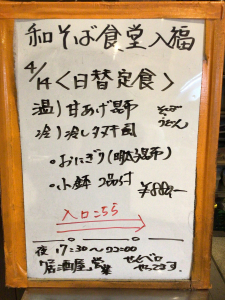 和そば食堂入福
4/14<日替定食>
温)甘あげ昆布 そば
冷)冷したヌキ風 うどん
・おにぎり(明太昆布)
・小鉢 2品付 ¥880-
入口こちら
夜 17:30〜22:00
"居酒屋"営業 せんべろ
やってます。